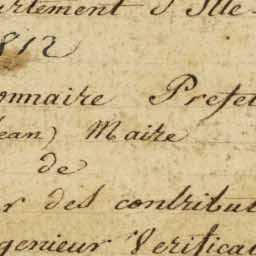 artement d'Ille
1812
onnaire Préfet
Jean) Maire
de
r des contribut
génieur Vérifica